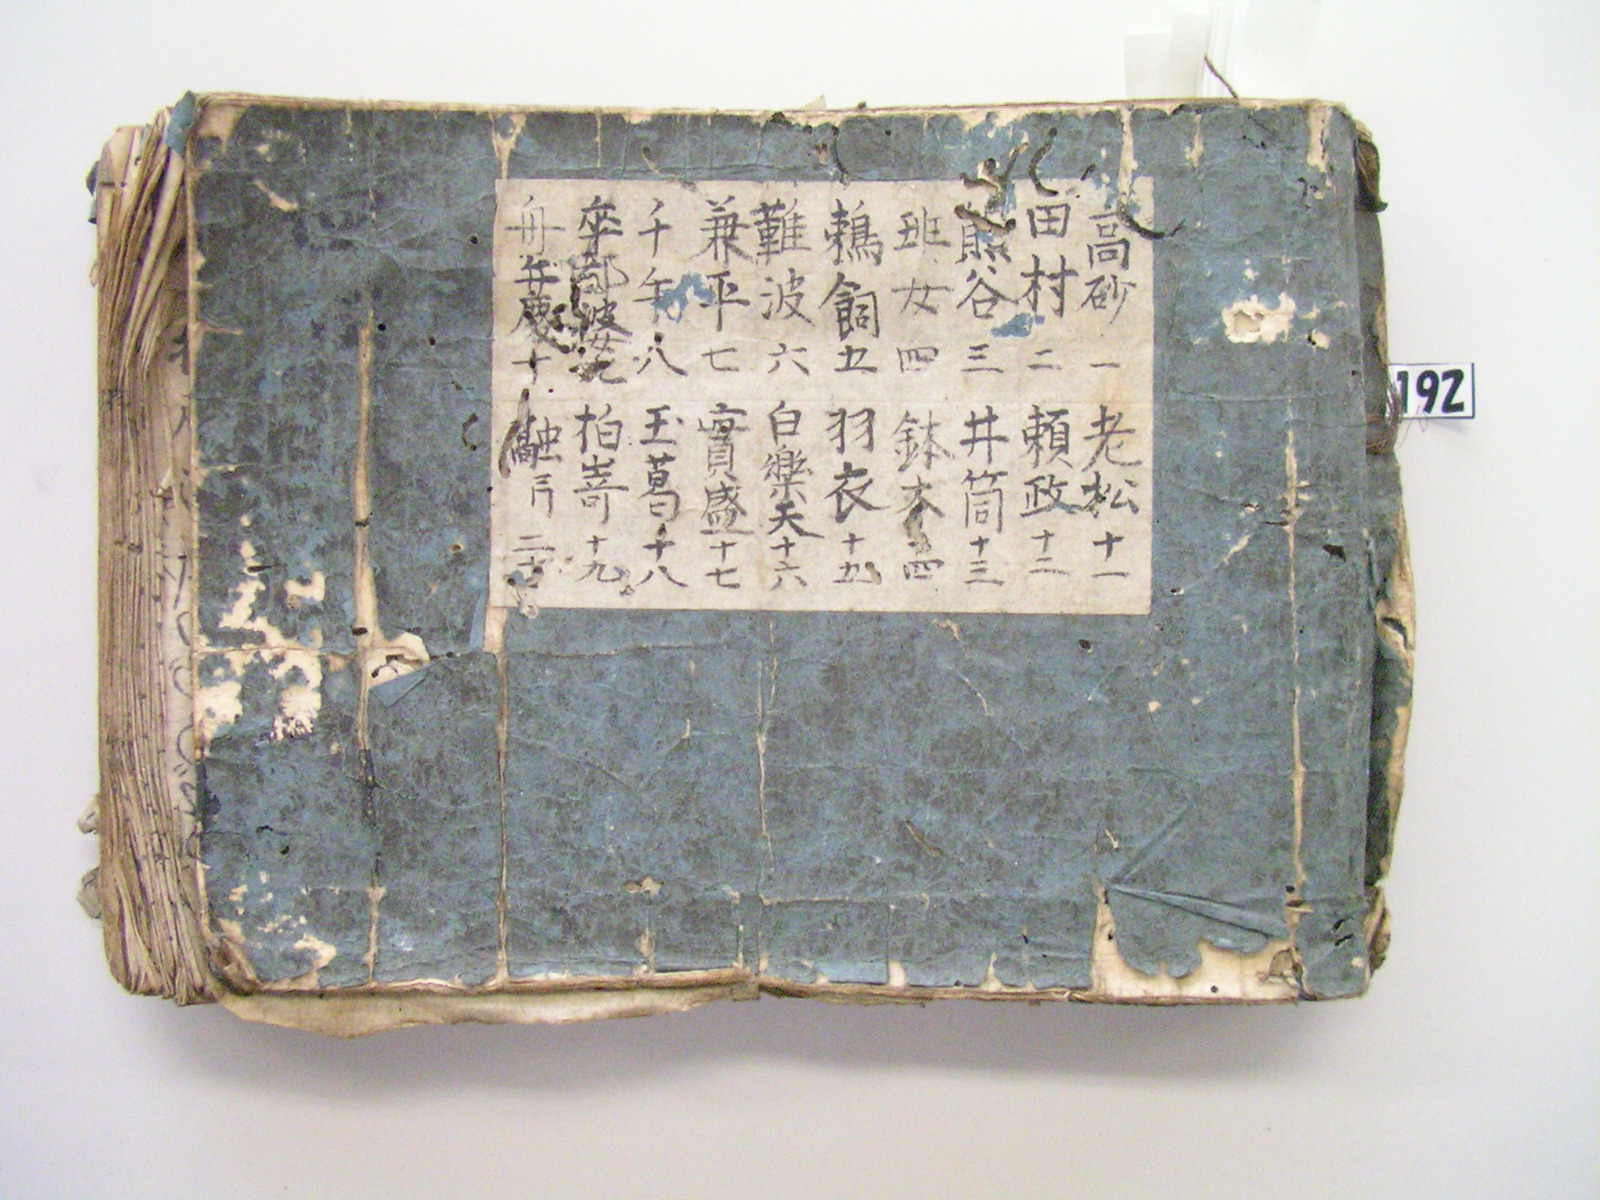 高砂 一
田村 二
熊谷 三
班女 四
鵜飼 五
難波 六
兼平 七
千年 八
卒都波 九
舟弁慶 十
老松 十一
頼政 十二
井筒 十三
鉢木 十四
羽衣 十五
白樂天 十六
實盛 十七
玉葛 十八
柏嵜 十九
融 二十
192